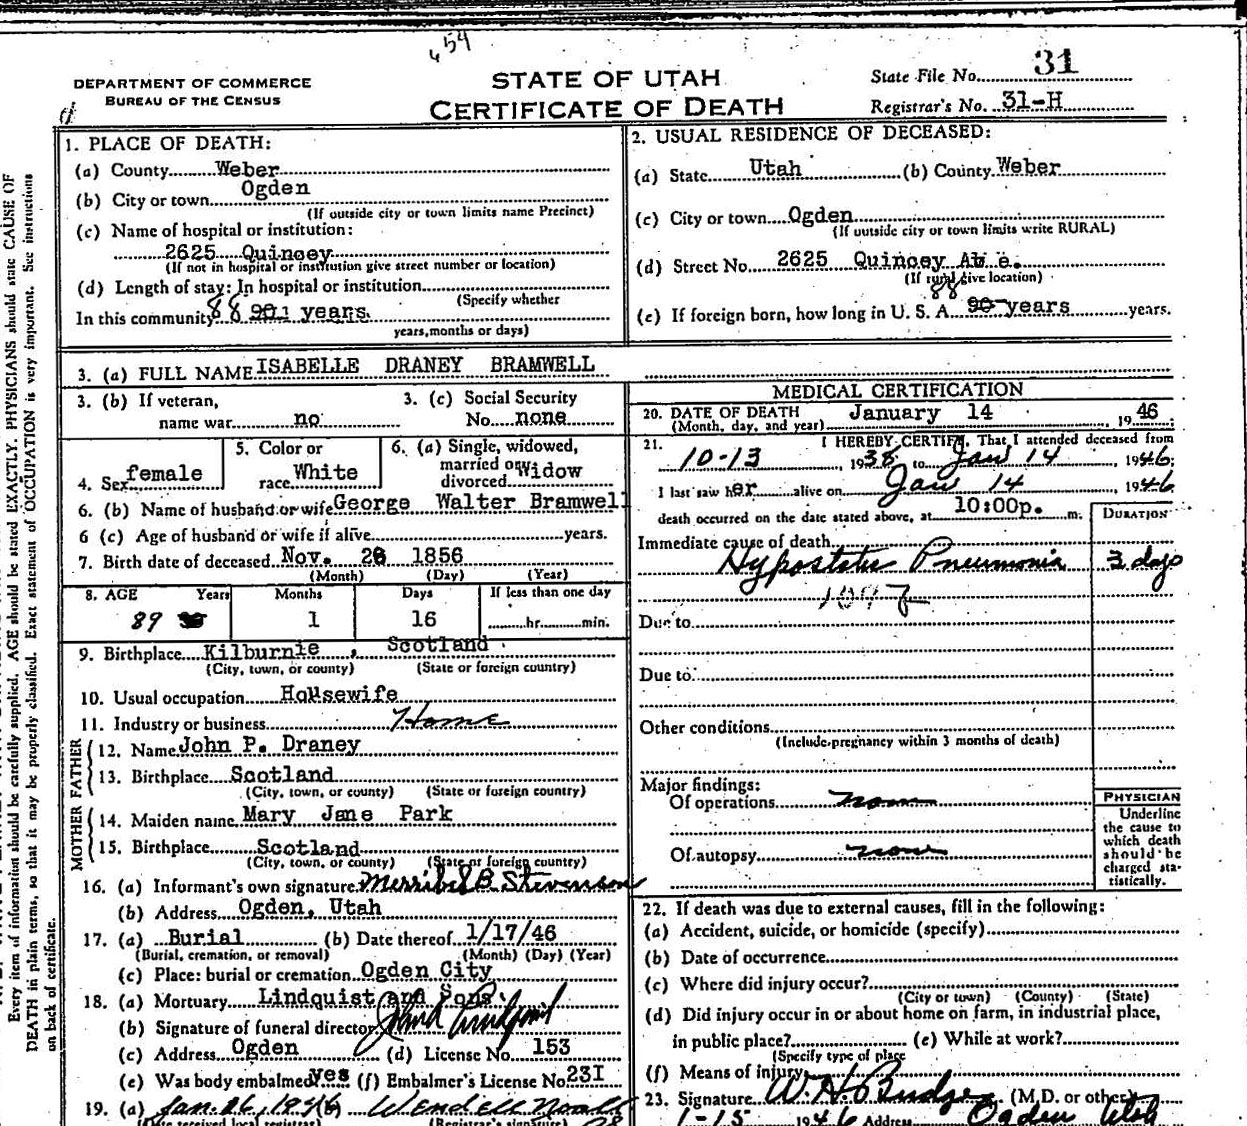 654
DEPARTMENT OF COMMERCE
BUREAU OF THE CENSUS
STATE OF UTAH
CERTIFICATE OF DEATH
State File No. 31
Registrar's No. 31-H
1. PLACE OF DEATH:
(a) County Weber
(b) City or town Ogden
(If outside city or town limits name Precinct)
(c) Name of hospital or institution:
2625 Quincey
(If not in hospital or institution give street number or location)
(d) Length of stay: In hospital or institution
(Specify whether
In this community 88 90 years
years, months or days)
2. USUAL RESIDENCE OF DECEASED:
(a) State Utah (b) County Weber
(c) City or town Ogden
(If outside city or town limits write RURAL)
(d) Street No. 2625 Quincey Av e.
(If rural give location)
88
(e) If foreign born, how long in U. S. A. 90 years years.
3. (a) FULL NAME ISABELLE DRANEY BRAMWELL
3. (b) If veteran, name war no
3. (c) Social Security No. none
4. Sex female
5. Color or race White
6. (a) Single, widowed, married or divorced Widow
6. (b) Name of husband or wife George Walter Bramwell
6 (c) Age of husband or wife if alive years.
7. Birth date of deceased Nov. 28 1856
(Month) (Day) (Year)
8. AGE Years Months Days If less than one day
89 1 16 hr. min.
9. Birthplace Kilburnie, Scotland
(City, town, or county) (State or foreign country)
10. Usual occupation Housewife
11. Industry or business Home
FATHER
12. Name John P. Draney
13. Birthplace Scotland
(City, town, or county) (State or foreign country)
MOTHER
14. Maiden name Mary Jane Park
15. Birthplace Scotland
(City, town, or county) (State or foreign country)
16. (a) Informant's own signature Merribel B Stevenson
(b) Address Ogden, Utah
17. (a) Burial (b) Date thereof 1/17/46
(Burial, cremation, or removal) (Month) (Day) (Year)
(c) Place: burial or cremation Ogden City
18. (a) Mortuary Lindquist and Sons
(b) Signature of funeral director
(c) Address Ogden (d) License No. 153
(e) Was body embalmed yes (f) Embalmer's License No. 23I
19. (a) Jan. 26, 1946 (b) Wendell
(Date received local registrar) (Registrar's signature)
MEDICAL CERTIFICATION
20. DATE OF DEATH January 14, 1946
(Month, day, and year)
21. I HEREBY CERTIFY, That I attended deceased from
10-13, 1938 to Jan 14, 1946;
I last saw her alive on Jan 14, 1946
death occurred on the date stated above, at 10:00p. m.
DURATION
Immediate cause of death
Hypostatic Pneumonia 3 days
Due to
Due to
Other conditions
(Include pregnancy within 3 months of death)
Major findings:
Of operations none
Of autopsy none
PHYSICIAN
Underline
the cause to
which death
should be
charged sta-
tistically.
22. If death was due to external causes, fill in the following:
(a) Accident, suicide, or homicide (specify)
(b) Date of occurrence
(c) Where did injury occur?
(City or town) (County) (State)
(d) Did injury occur in or about home on farm, in industrial place,
in public place? (e) While at work?
(Specify type of place
(f) Means of injury
23. Signature W. H. Budge (M.D. or other)
1-15 1946 Address Ogden Utah
Every item of information should be carefully supplied. AGE should be stated EXACTLY. PHYSICIANS should state CAUSE OF
DEATH in plain terms, so that it may be properly classified. Exact statement of OCCUPATION is very important. See instructions
on back of certificate.